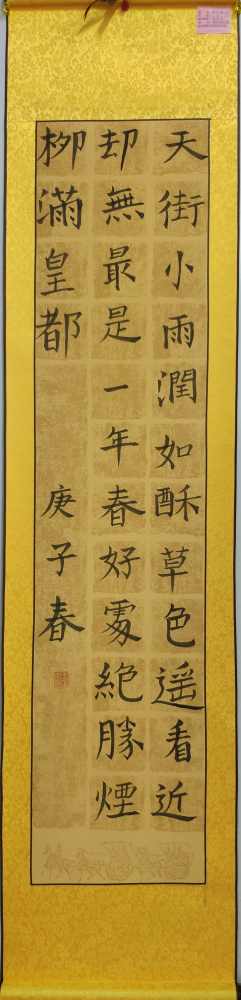 天街小雨潤如酥草色遥看近
却無最是一年春好處絕勝煙
柳滿皇都
庚子春